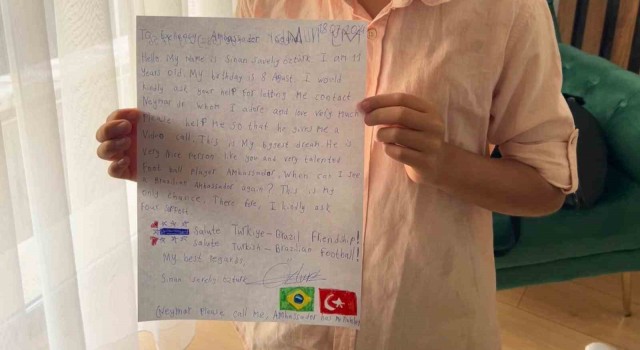 To
Ambassador
Hello My name is Sinan
I am 11
Years old. My birthday is 5 August. I would
kindly ask your help for letting me contact
Neymar Jr. whom I adore and love very much
Please help me so that he gives me a
Video call. This is My biggest dream. He is
very nice person like you and very talented
Foot ball player Ambassador. When can I see
a Brazilian Ambassador again? This is my
only chance. There fore, I kindly ask
Your
Salute Türkiye-Brazil Friendship!
Salute Turkish-Brazilian football!
My best regards.
Sinan
Please call me, Ambassador has my